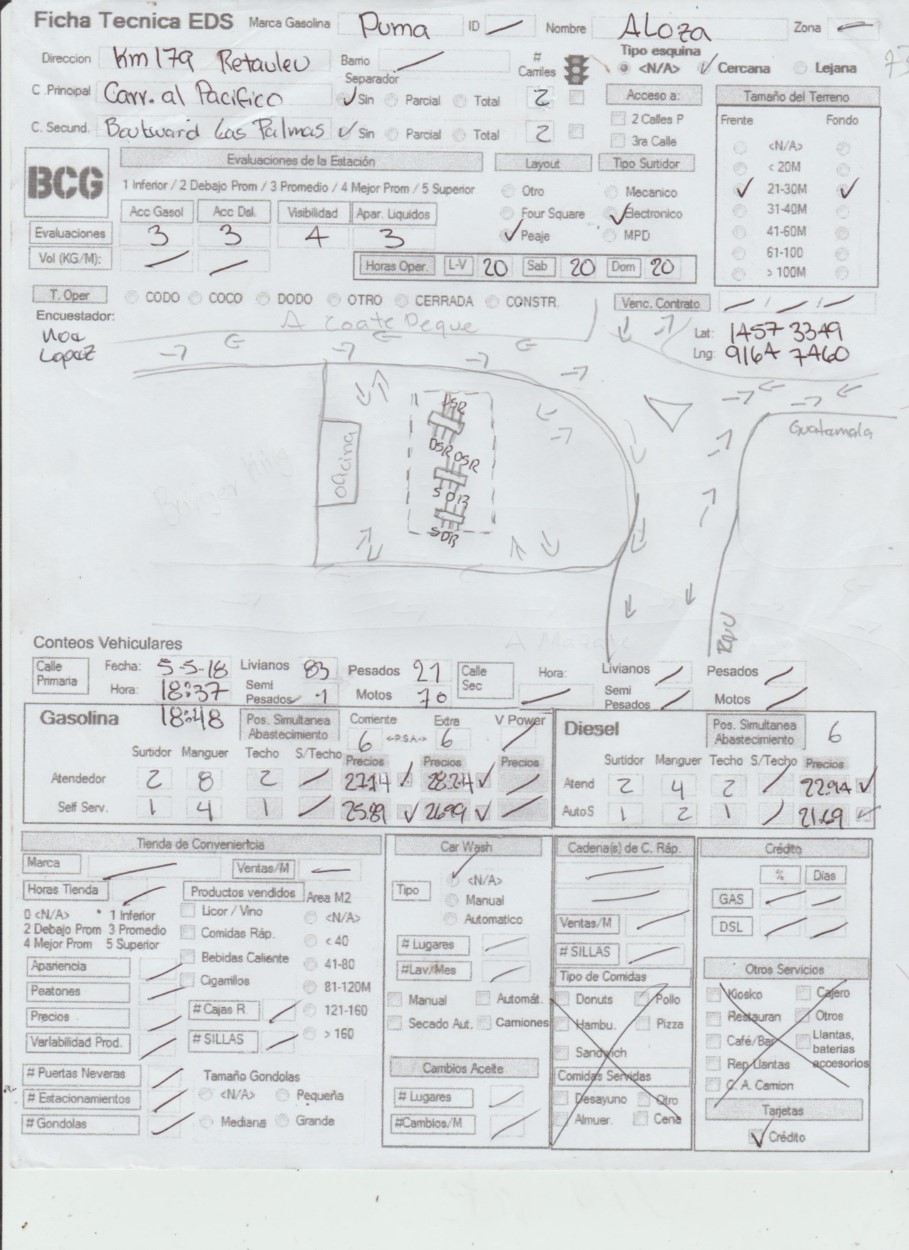 Ficha Tecnica EDS Marca Gasolina Puma ID Nombre Aloza Zona
Direccion Km 179 Retauleu Barrio # Carriles Tipo esquina <N/A> Cercana Lejana
Separador
C .Principal Carr. al Pacifico Sin Parcial Total 2 Acceso a: Tamaño del Terreno
C. Secund. Boulward Las Palmas Sin Parcial Total 2 2 Calles P Frente Fondo
3ra Calle <N/A>
BCG Evaluaciones de la Estación Layout Tipo Surtidor < 20M
1 Inferior / 2 Debajo Prom / 3 Promedio / 4 Mejor Prom / 5 Superior Otro Mecanico 21-30M
Acc Gasol Acc Dsl. Visibilidad Apar. Liquidos Four Square Electronico 31-40M
Evaluaciones 3 3 4 3 Peaje MPD 41-60M
Vol (KG/M): Horas Oper. L-V 20 Sab 20 Dom 20 61-100
> 100M
T. Oper CODO COCO DODO OTRO CERRADA CONSTR. Venc. Contrato / / /
Encuestador: A Coate Deque Lat: 1457 3349
Noe Lopez Lng: 9164 7460
Guatamala
DSR
Oficina
DSR DSR
SDR
SDR
Burger King
Reu
Conteos Vehiculares
Calle Primaria Fecha: 5-5-18 Livianos 83 Pesados 21 Calle Sec Hora: Livianos Pesados
Hora: 18:37 Semi Pesados 1 Motos 70 Semi Pesados Motos
18:48
Gasolina Pos. Simultanea Abastecimiento Corriente 6 <-P.S.A-> Extra 6 V Power Diesel Pos. Simultanea Abastecimiento 6
Surtidor Manguer Techo S/Techo Precios Precios Precios Surtidor Manguer Techo S/Techo Precios
Atendedor 2 8 2 27.14 28.24 Atend 2 4 2 22.94
Self Serv. 1 4 1 25.89 26.99 AutoS 1 2 1 21.69
Tienda de Conveniencia Car Wash Cadena(s) de C. Ráp. Crédito
Marca Ventas/M <N/A> % Días
Horas Tienda Productos vendidos Area M2 Tipo Manual GAS
0 <N/A> * 1 Inferior Licor / Vino <N/A> Automatico Ventas/M DSL
2 Debajo Prom 3 Promedio Comidas Ráp. < 40 # Lugares # SILLAS
4 Mejor Prom 5 Superior Bebidas Caliente 41-80 #Lav/Mes Tipo de Comidas Otros Servicios
Apariencia Cigarrillos 81-120M Manual Automát. Donuts Pollo Kiosko Cajero
Peatones # Cajas R. 121-160 Secado Aut. Camiones Hambu. Pizza Restauran Otros
Precios # SILLAS > 160 Sandwich Café/Bar Llantas, baterias accesorios
Variabilidad Prod. Cambios Aceite Comidas Servidas Rep Llantas
# Puertas Neveras Tamaño Gondolas # Lugares Desayuno Otro C. A. Camion
# Estacionamientos <N/A> Pequeña #Cambios/M Almuer. Cena Tarjetas
# Gondolas Mediana Grande Crédito